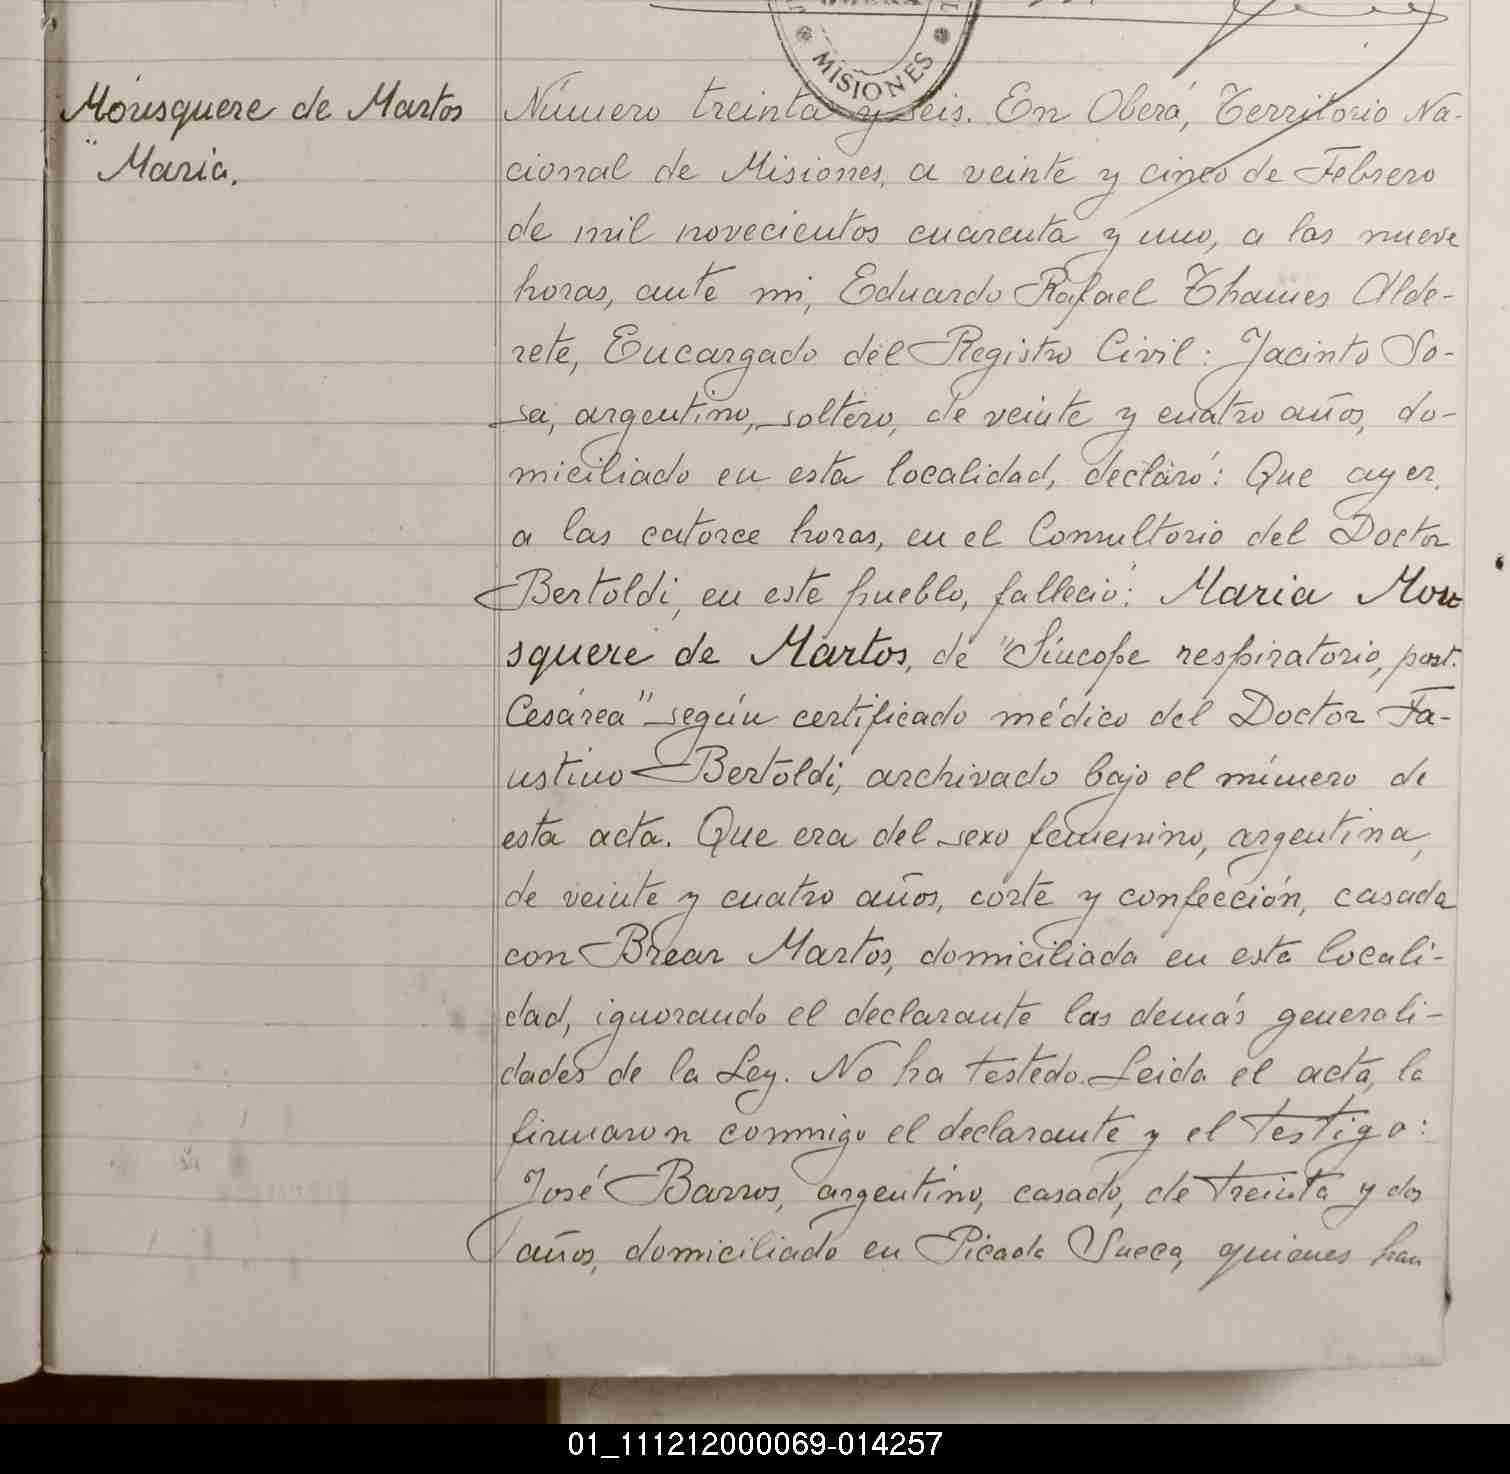 MISIONES
Mousquere de Martos
" Maria.
Número treinta y seis. En Oberá, Territorio Na-
cional de Misiones, a veinte y cinco de Febrero
de mil novecientos cuarenta y uno, a las nueve
horas, ante mi, Eduardo Rafael Thames Alde-
rete, Encargado del Registro Civil: Jacinto So-
sa, argentino, soltero, de veinte y cuatro años, do-
miciliado en esta localidad, declaró: Que ayer,
a las catorce horas, en el Consultorio del Doctor
Bertoldi, en este pueblo, falleció: Maria Mou
squere de Martos, de "Síncope respiratorio, post.
Cesárea" según certificado médico del Doctor Fa-
ustino Bertoldi, archivado bajo el número de
esta acta. Que era del sexo femenino, argentina,
de veinte y cuatro años, corte y confección, casada
con Brear Martos, domiciliada en esta locali-
dad, ignorando el declarante las demás generali-
dades de la Ley. No ha testado. Leida el acta, la
firmaron conmigo el declarante y el testigo:
José Barros, argentino, casado, de treinta y dos
años, domiciliado en Picada Sueca, quienes han
01_111212000069-014257